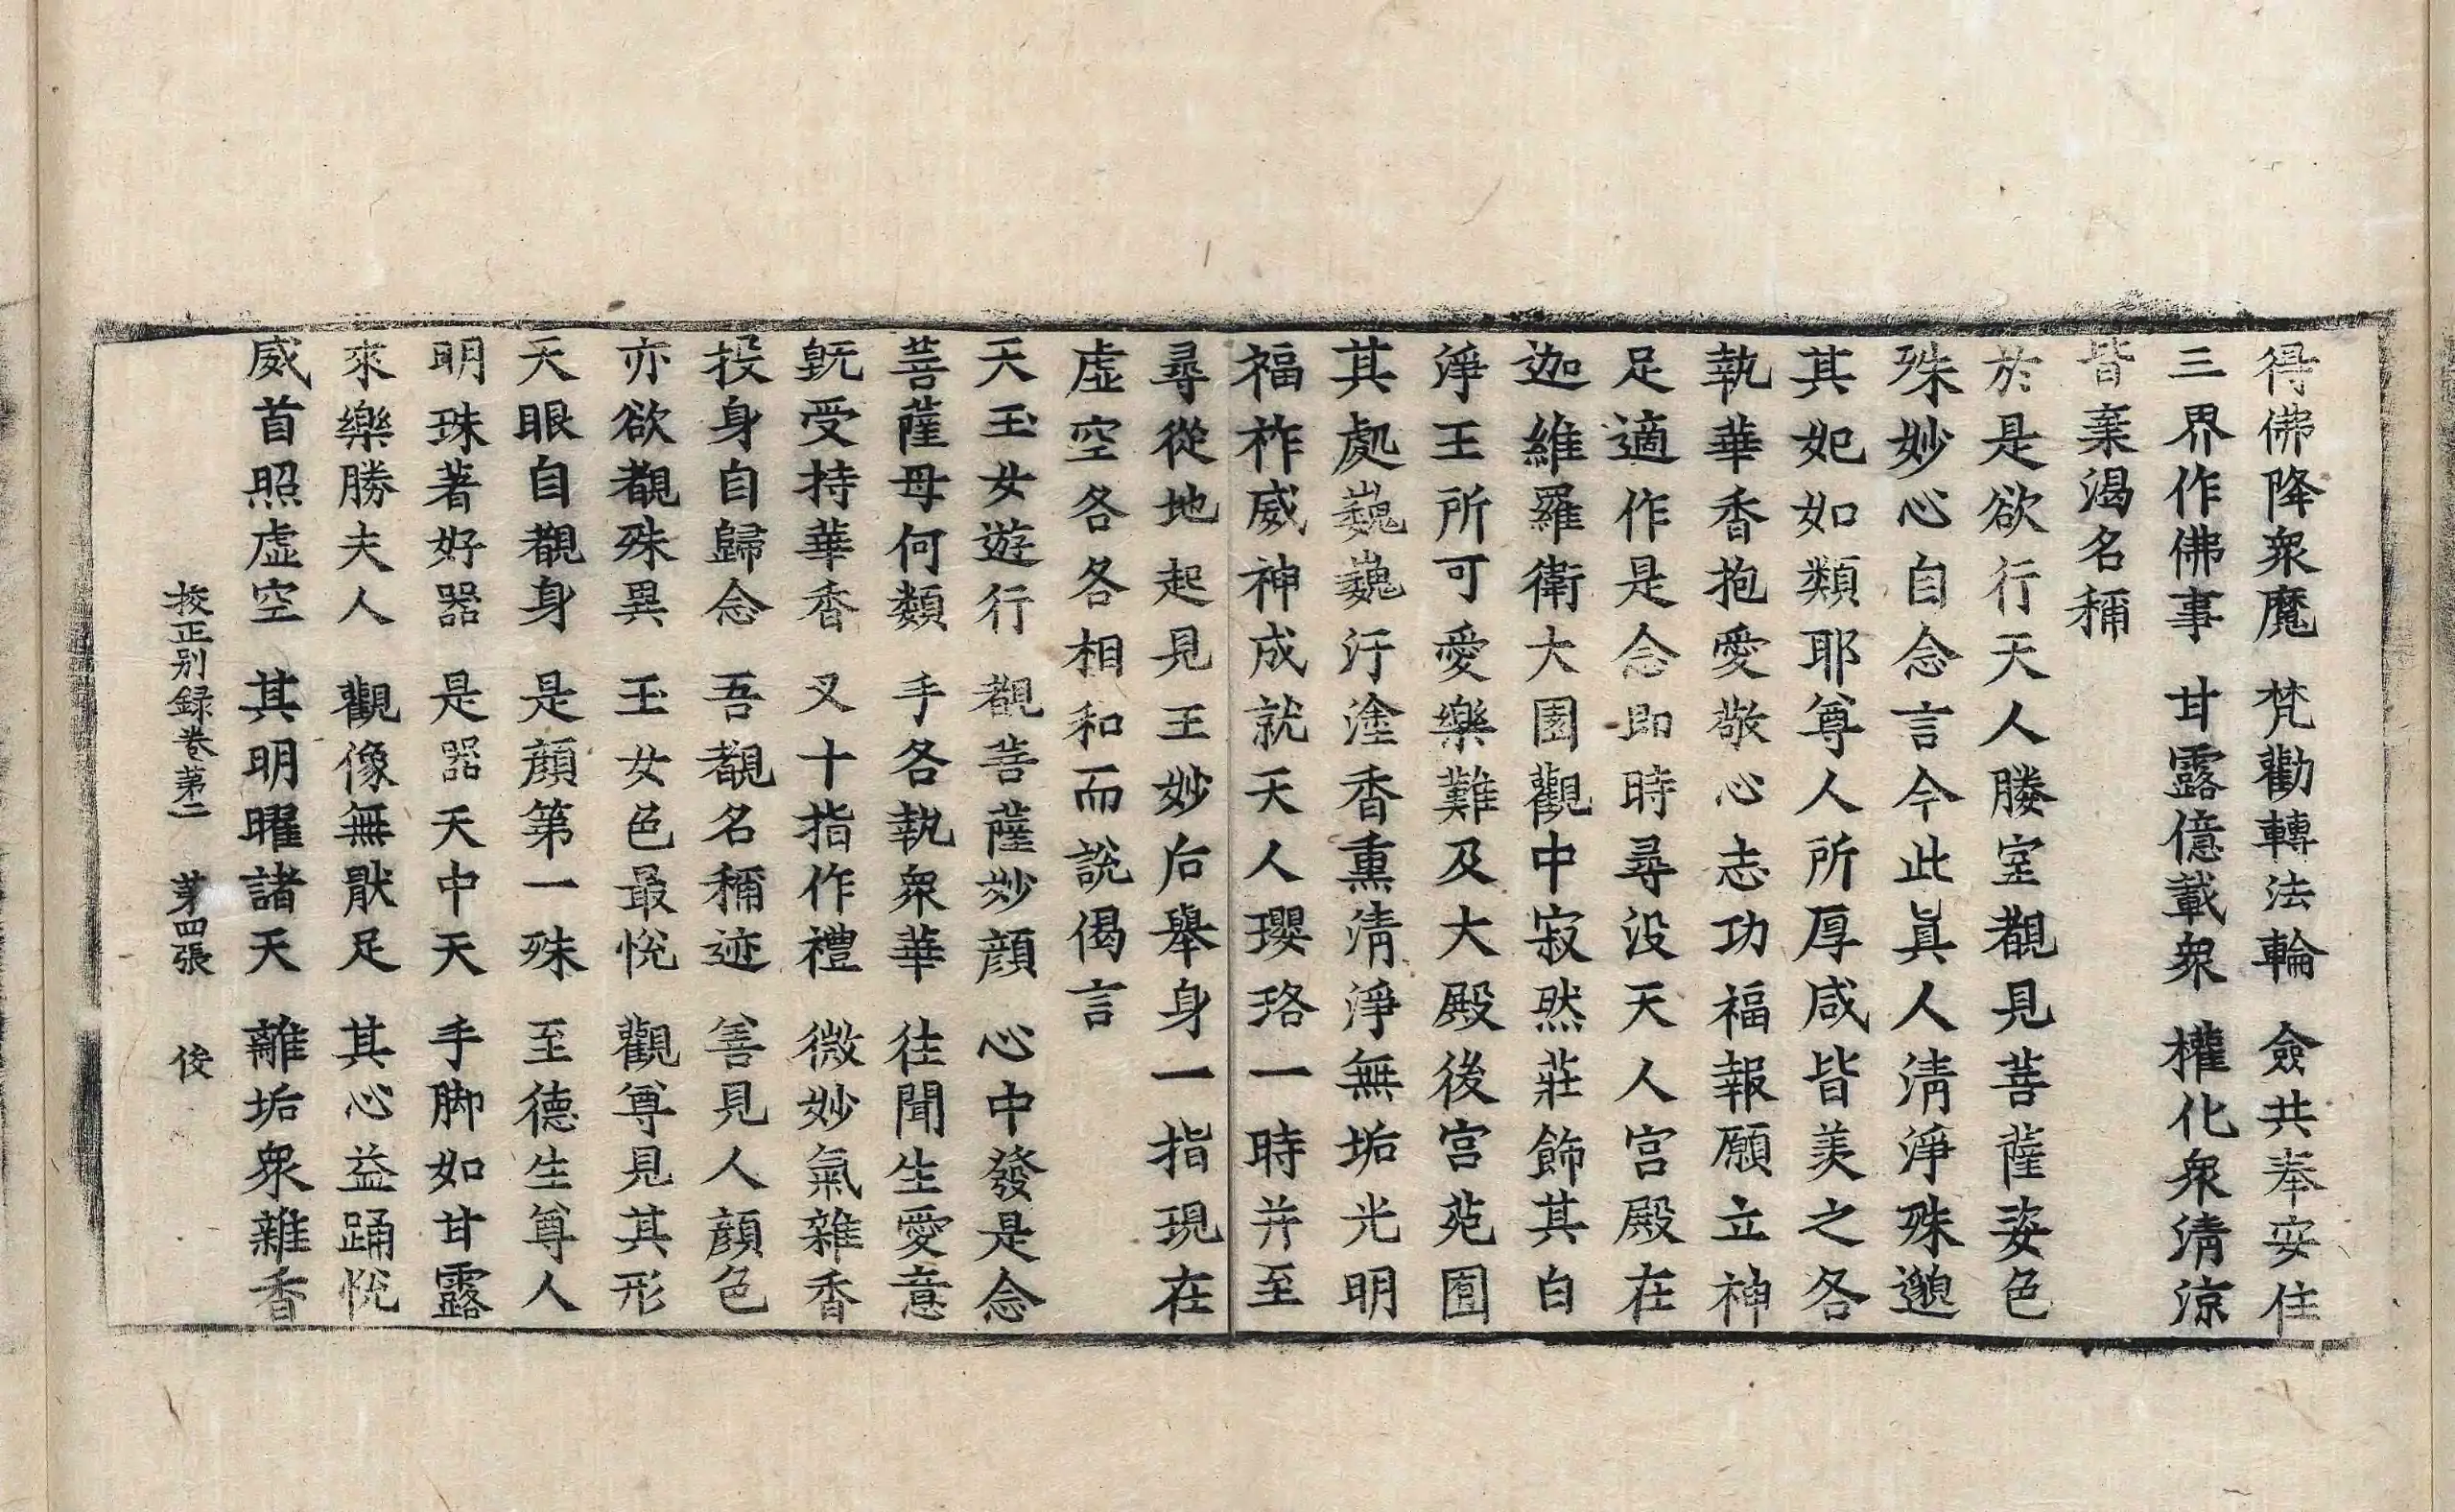 得佛降衆魔 梵勸轉法輪 僉共奉安住
三界作佛事 甘露億載衆 權化衆清涼
皆棄渴名稱
於是欲行天人媵室覩見菩薩姿色
殊妙心自念言今此真人清淨殊邈
其妃如類耶尊人所厚咸皆羨之各
執華香抱愛敬心志功福報願立神
足適作是念即時尋没天人宫殿在
迦維羅衛大園觀中寂然莊飾其白
淨王所可愛樂難及大殿後宫苑囿
其處巍巍汙塗香熏清淨無垢光明
福祚威神成就天人瓔珞一時并至
尋從地起見王妙后舉身一指現在
虛空各各相和而說偈言
天玉女遊行 觀菩薩妙顔 心中發是念
菩薩母何類 手各執衆華 往聞生愛意
旣受持華香 叉十指作禮 微妙氣雜香
投身自歸念 吾覩名稱迹 善見人顔色
亦欲覩殊異 玉女色最悅 觀尊見其形
天眼自覩身 是顔第一殊 至德生尊人
明珠著好器 是器天中天 手脚如甘露
來樂勝夫人 觀像無猒足 其心益踊悅
威首照虛空 其明曜諸天 離垢衆雜香
挍正别録卷第二 第四張 俊